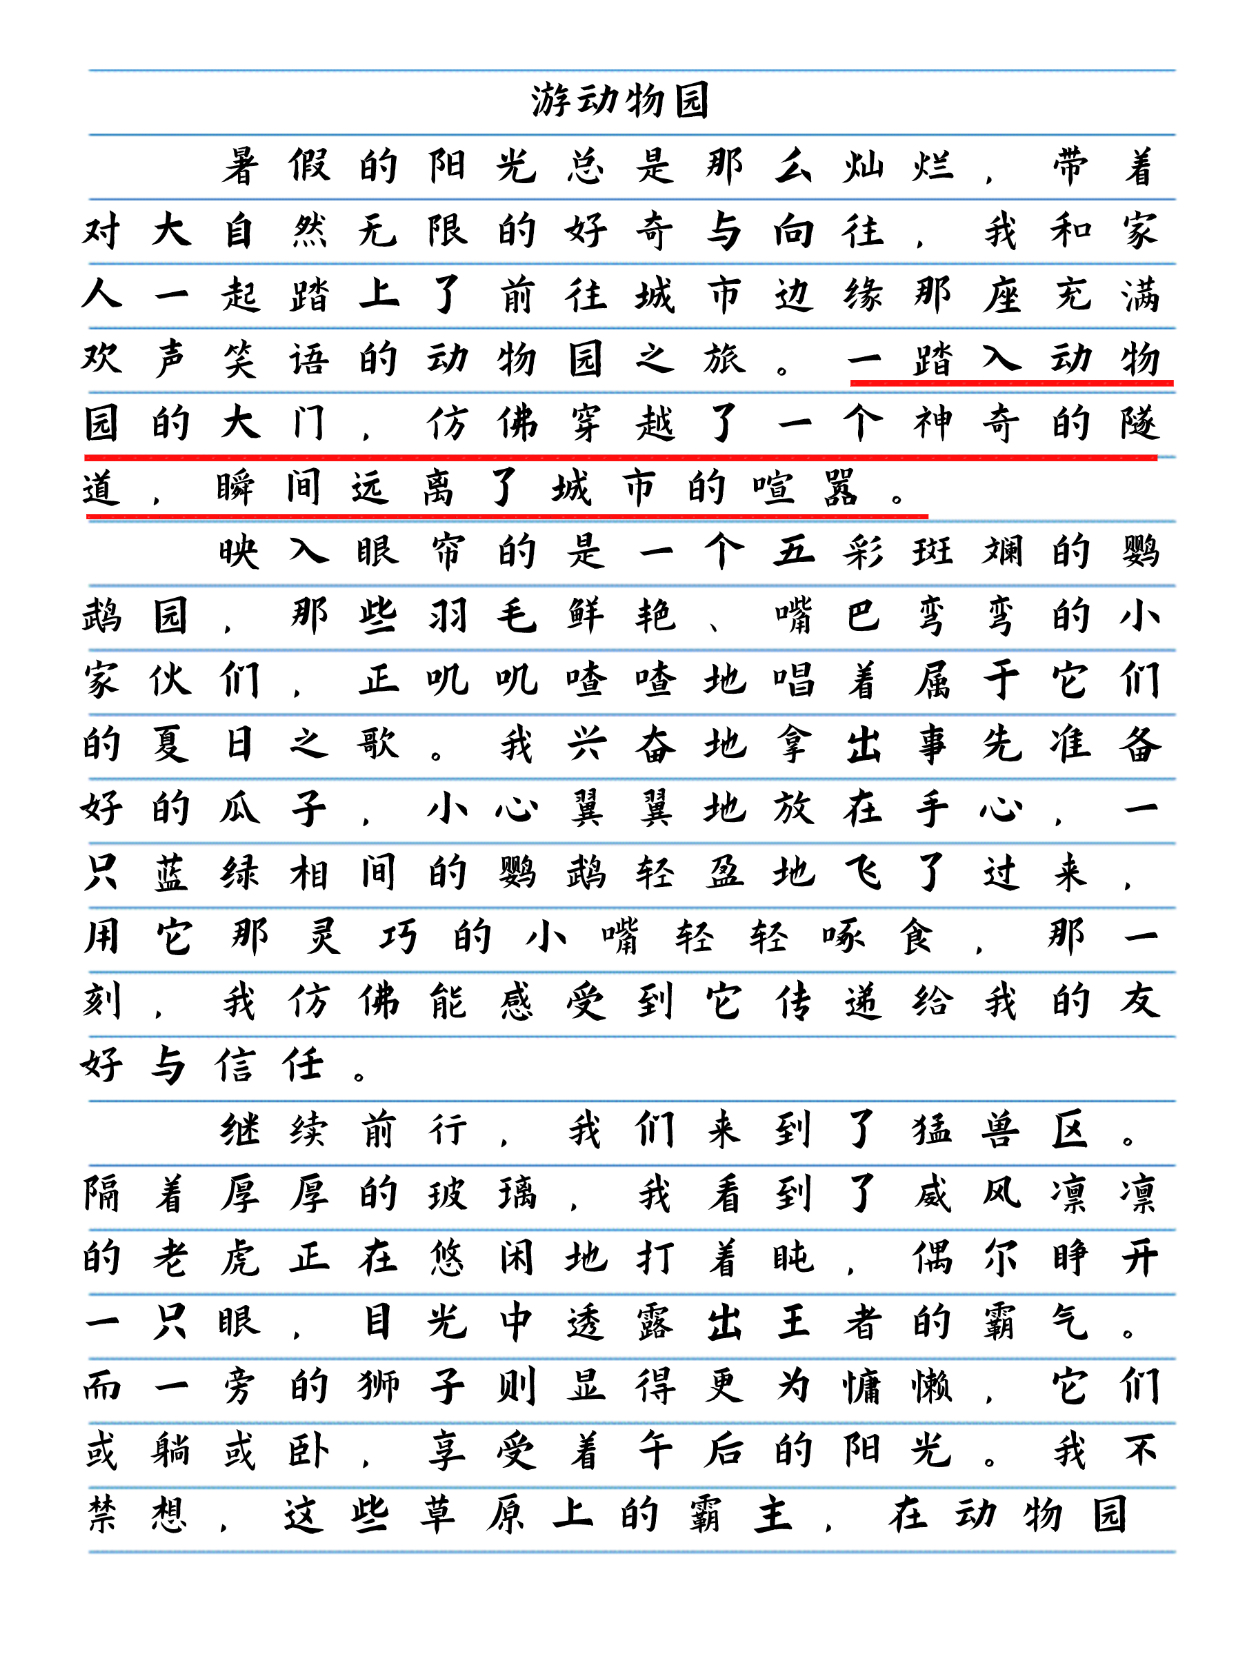 游动物园
暑假的阳光总是那么灿烂，带着
对大自然无限的好奇与向往，我和家
人一起踏上了前往城市边缘那座充满
欢声笑语的动物园之旅。一踏入动物
园的大门，仿佛穿越了一个神奇的隧
道，瞬间远离了城市的喧嚣。
映入眼帘的是一个五彩斑斓的鹦
鹉园，那些羽毛鲜艳、嘴巴弯弯的小
家伙们，正叽叽喳喳地唱着属于它们
的夏日之歌。我兴奋地拿出事先准备
好的瓜子，小心翼翼地放在手心，一
只蓝绿相间的鹦鹉轻盈地飞了过来，
用它那灵巧的小嘴轻轻啄食，那一
刻，我仿佛能感受到它传递给我的友
好与信任。
继续前行，我们来到了猛兽区。
隔着厚厚的玻璃，我看到了威风凛凛
的老虎正在悠闲地打着盹，偶尔睁开
一只眼，目光中透露出王者的霸气。
而一旁的狮子则显得更为慵懒，它们
或躺或卧，享受着午后的阳光。我不
禁想，这些草原上的霸主，在动物园